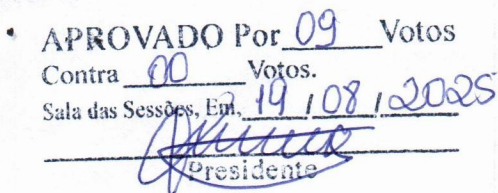 APROVADO Por 09 Votos
Contra 00 Votos.
Sala das Sessões, Em, 19 / 08 / 2025
Presidente